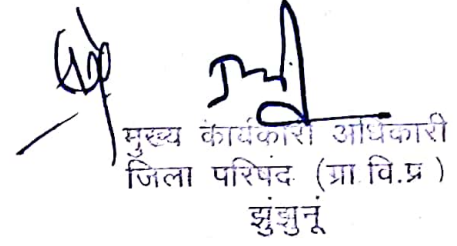 मुख्य कार्यकारी अधिकारी
जिला परिषद (ग्रा.वि.प्र)
झुंझुनूं